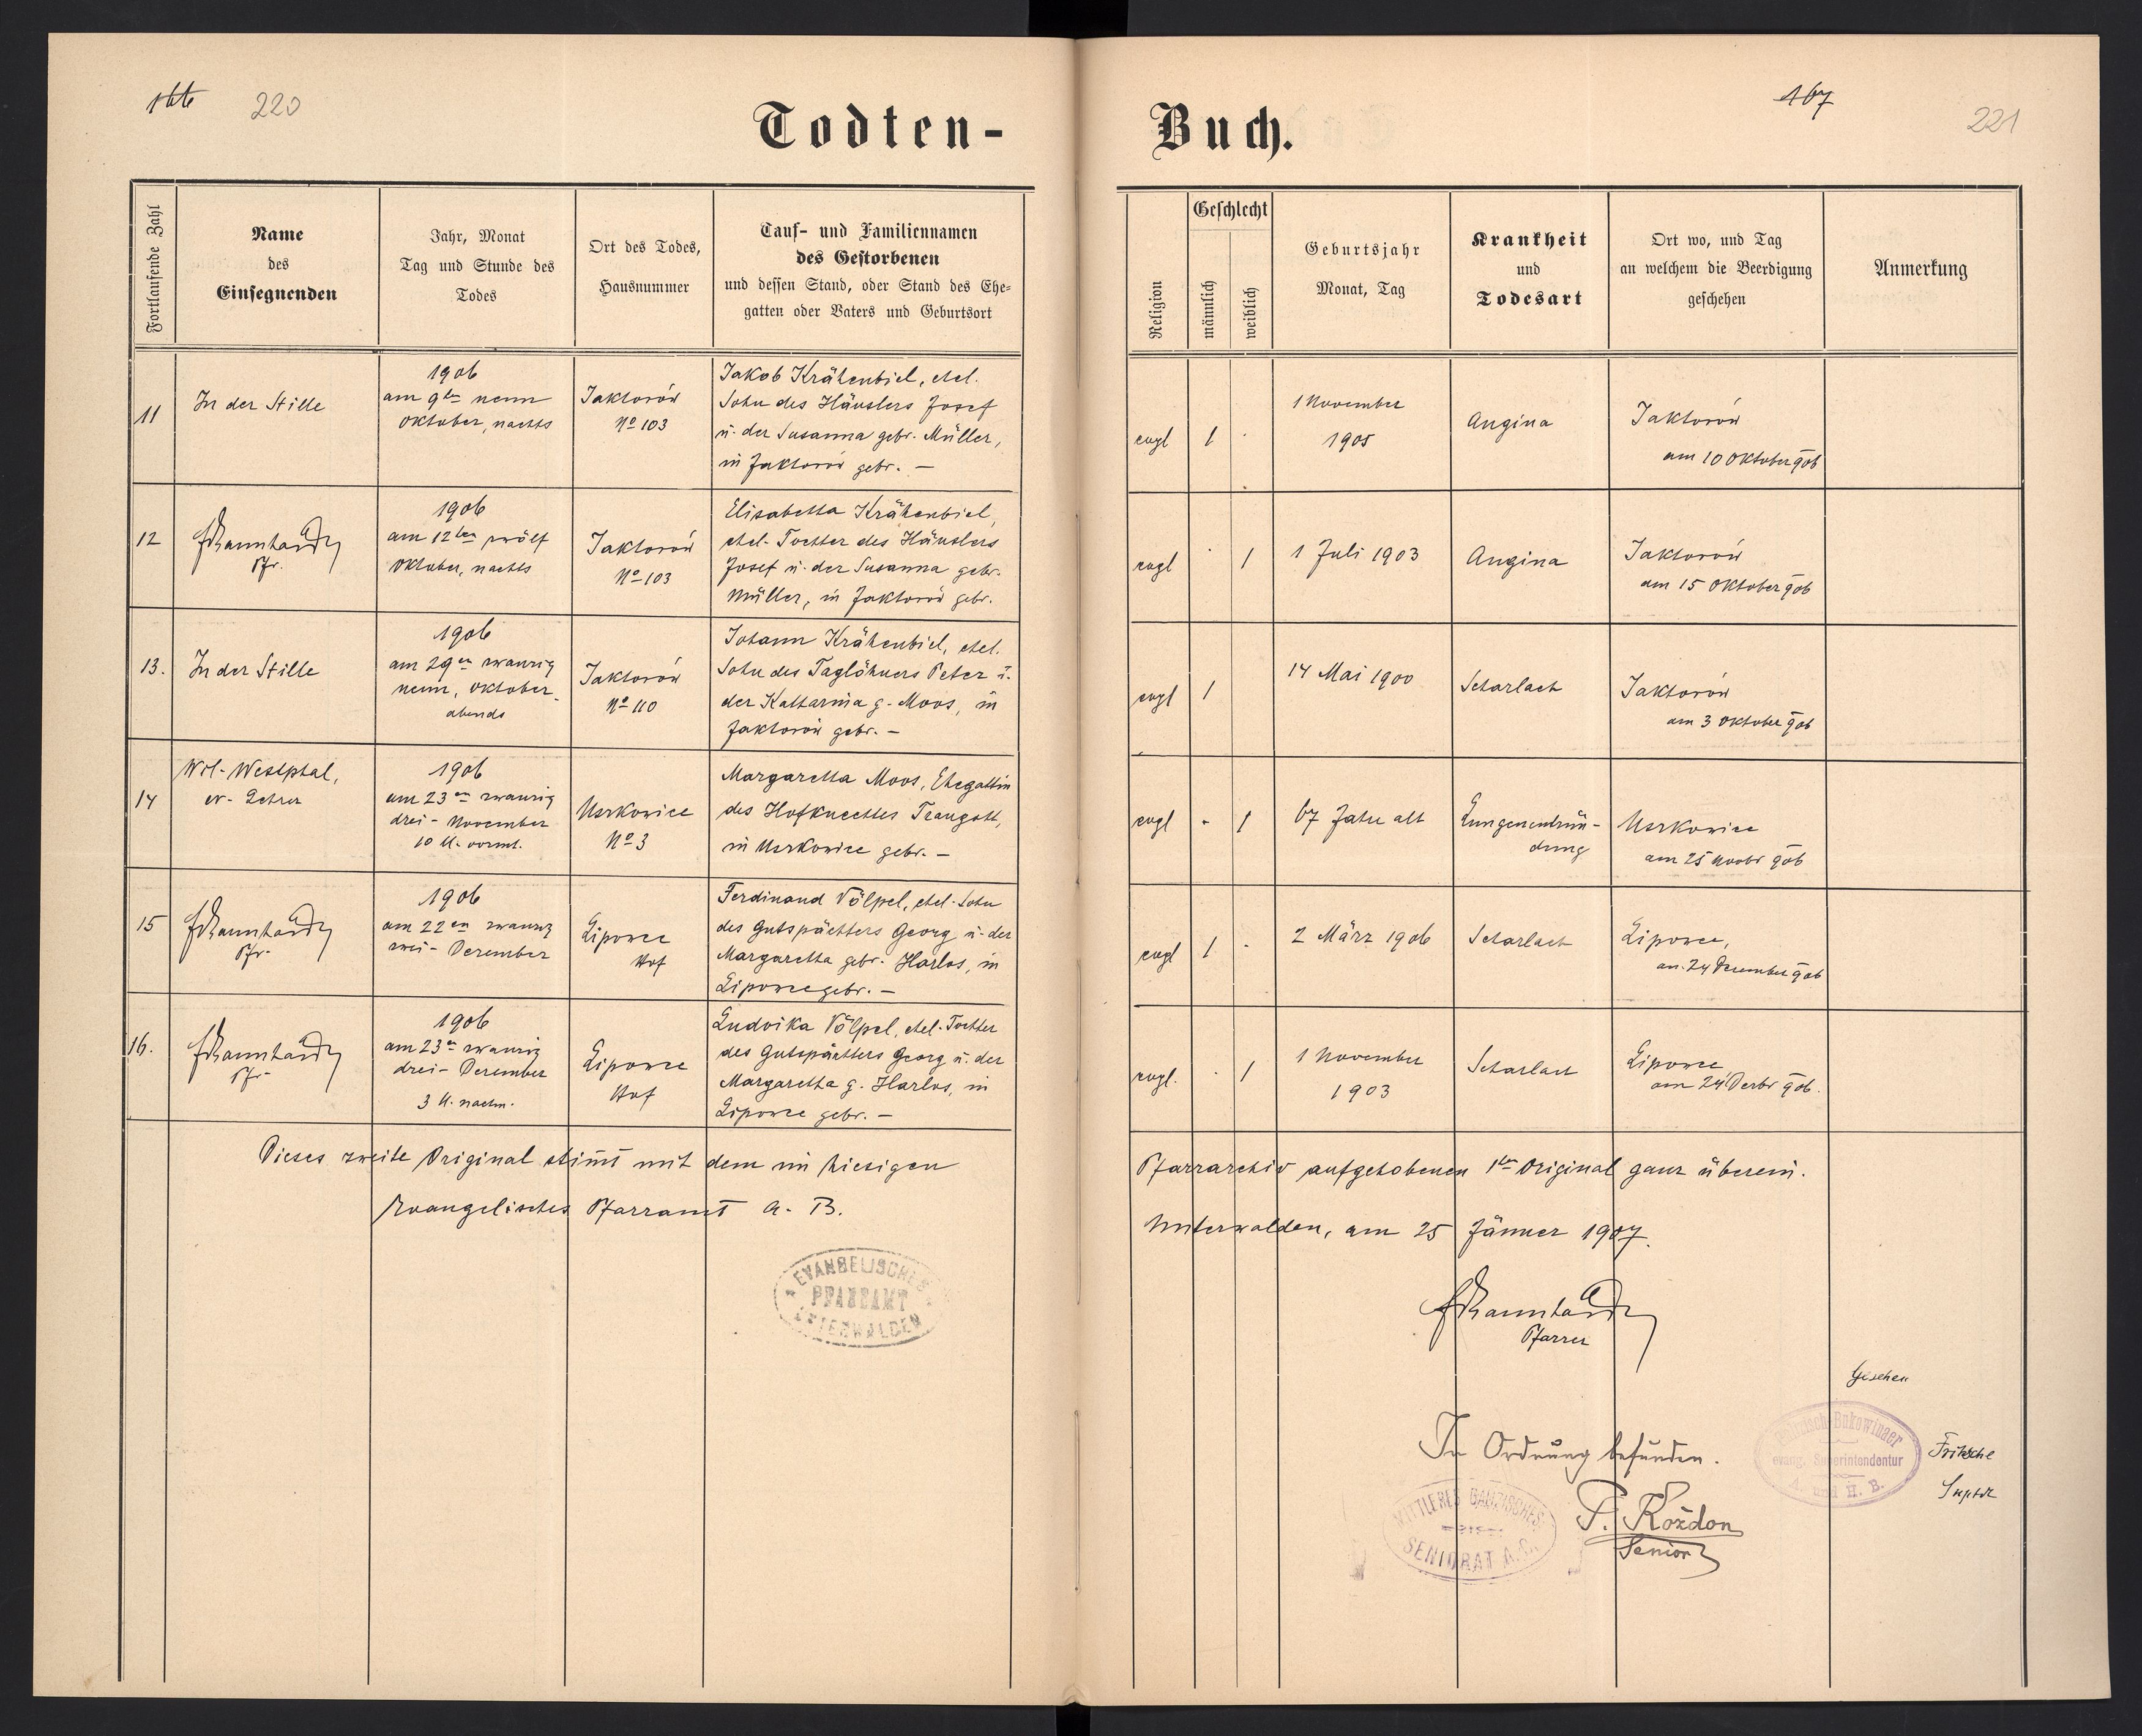 166 220
Todten-
Fortlaufende Zahl
Name
des
Einsegnenden
Jahr, Monat
Tag und Stunde des
Todes
Ort des Todes,
Hausnummer
Tauf- und Familiennamen
des Gestorbenen
und dessen Stand, oder Stand des Ehe-
gatten oder Vaters und Geburtsort
11
In der Stille
1906
am 9ten neun
Oktober, nachts
Jaktorów
No 103
Jakob Krähenbiel, ehel.
Sohn des Häuslers Josef
u. der Susanna gebr. Müller,
in Jaktorów gebr. –
12
Pfr.
1906
am 12ten zwölf
Oktober, nachts
Jaktorów
No 103
Elisabetha Krähenbiel,
ehel. Tochter des Häuslers
Josef u. der Susanna gebr.
Müller, in Jaktorów gebr.
13.
In der Stille
1906
am 29en zwanzig
neun, Oktober
abends
Jaktorów
No 110
Johann Krähenbiel, ehel.
Sohn des Taglöhners Peter u.
der Katharina g. Moos, in
Jaktorów gebr. –
14
Wil. Westphal,
ev. Lehrer
1906
am 23en zwanzig
drei – November
10 U. vormt.
Uszkowice
No 3
Margaretha Moos, Ehegattin
des Hofknechtes Traugott,
in Uszkowice gebr. –
15
Pfr.
1906
am 22en zwanzig
zwei – Dezember
Lipowce
Hof
Ferdinand Völpel, ehel. Sohn
des Gutspächters Georg u. der
Margaretha gebr. Harlos, in
Lipowce gebr. –
16.
Pfr.
1906
am 23en zwanzig
drei – Dezember
3 U. nachm.
Lipowce
Hof
Ludvika Völpel, ehel. Tochter
des Gutspächters Georg u. der
Margaretha g. Harlos, in
Lipowce gebr. –
Dieses zweite Original stim̄t mit dem im hiesigen
Evangelisches Pfarramt A. B.
EVANGELISCHES
PFARRAMT
UNTERWALDEN
167
221
Buch.
Religion
Geschlecht
männlich
weiblich
Geburtsjahr
Monat, Tag
Krankheit
und
Todesart
Ort wo, und Tag
an welchem die Beerdigung
geschehen
Anmerkung
evgl 1 ·
1 November
1905
Angina
Jaktorów
am 10 Oktober 906
evgl · 1
1 Juli 1903
Angina
Jaktorów
am 15 Oktober 906
evgl 1
14 Mai 1900
Scharlach
Jaktorów
am 3 Oktober 906
evgl - 1
67 Jahre alt
Lungenentzün-
dung
Uszkowice
am 25 Novbr 906
evgl 1 ·
2 März 1906
Scharlach
Lipowce,
am 24 Dezember 906
evgl. · 1
1 November
1903
Scharlach
Lipowce
am 24 Dezbr 906.
Pfarrarchiv aufgehobenen 1ten Original ganz überein.
Unterwalden, am 25 Jänner 1907.
Pfarrer
Gesehen
In Ordnung befunden.
Bukowinaer
evang. Superintendentur
A. und H. B.
Fritsche
Suptdt
MITTLERES GALIZISCHES
SENIORAT A. C.
P. Rozdon
Senior